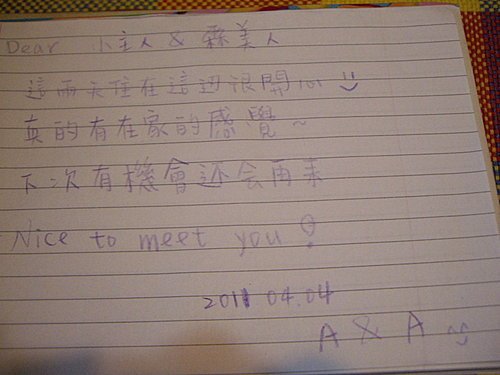 Dear 小主人 & 霖美人
這兩天住在這边很開心
真的有在家的感覺~
下次有機會还会再來
Nice to meet you!
2011 04.04
A & A